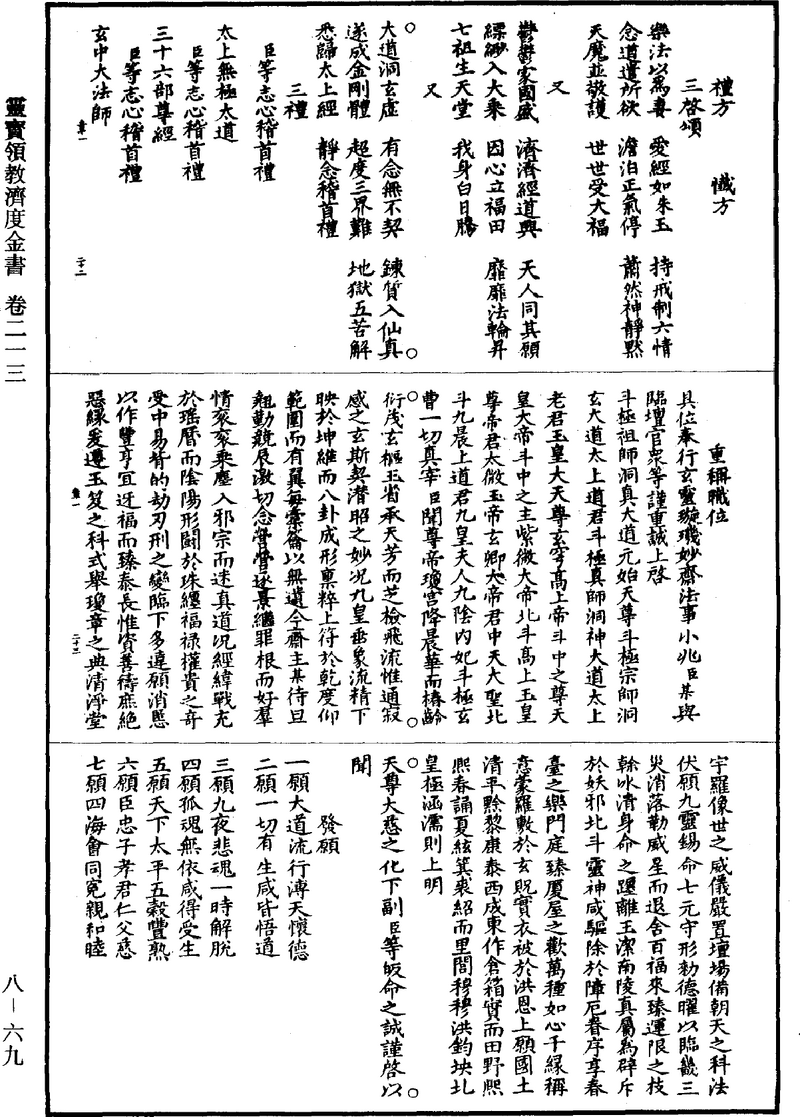 禮方　懴方
三啓頌
樂法以爲妻　愛經如朱玉　持戒制六情
念道遣所欲　澹泊正氣停　蕭然神靜黙
天魔並敬護　世世受大福
又
鬱鬱家國盛　濟濟經道興　天人同其願
縹緲入大乘　因心立福田　靡靡法輪昇
七祖生天堂　我身白日騰
又
大道洞玄虛　有念無不契　鍊質入仙真
遂成金剛體　超度三界難　地獄五苦解
悉歸太上經　靜念稽首禮
三禮
臣等志心稽首禮
太上無極太道
臣等志心稽首禮
三十六部尊經
臣等志心稽首禮
玄中大法師
重稱職位
具位奉行玄靈璇璣妙齋法事小兆臣某與
臨壇官衆等謹重誠上啓
斗極祖師洞真大道元始天尊斗極宗師洞
玄大道太上道君斗極真師洞神大道太上
老君玉皇大天尊玄穹高上帝斗中之尊天
皇大帝斗中之主紫微大帝北斗高上玉皇
尊帝君太微玉帝玄卿大帝君中天大聖北
斗九晨上道君九皇夫人九陰內妃斗極玄
曹一切真宰臣聞尊帝瓊宮降晨華而椿齡
衍茂玄樞玉省承天芳而芝檢飛流惟通寂
感之玄斯契潛昭之妙况九皇垂象流精下
映於坤維而八卦成形稟粹上符於乾度仰
範圍而有翼每彙綸以無遺今齋主某待旦
翹勤兢辰激切念營營逐景繼罪根而好羣
情衮衮乘塵入邪宗而迷真道况經緯戰克
於瑤曆而陰陽形鬬於珠纏福祿權貴之奇
受中易背的劫刃刑之變臨下多違願消慝
以作豐亨宜迓福而臻泰長惟資善禱庶絶
惡緣爰遵玉笈之科式舉瓊章之典清淨堂
宇羅像世之威儀嚴置壇場備朝天之科法
伏願九靈錫命七元守形勑德曜以臨畿三
災消落勒威星而退舍百福來臻運限之枝
幹冰清身命之躔離玉潔南陵真屬爲辟斥
於妖邪北斗靈神咸驅除於障厄眷序享春
臺之樂門庭臻厦屋之歡萬種如心千緣稱
意蒙羅敷於玄貺實衣被於洪恩上願國土
清平黔黎康泰西成東作倉箱實而田野熙
熙春誦夏絃箕裘紹而里閭穆穆洪鈞坱圠
皇極涵濡則上明
天尊大慈之化下副臣等皈命之誠謹啓以
聞
發願
一願大道流行溥天懷德
二願一切有生咸皆悟道
三願九夜悲魂一時解脫
四願孤魂無依咸得受生
五願天下太平五穀豐熟
六願臣忠子孝君仁父慈
七願四海會同寃親和睦
靈寶領教濟度金書　卷二一三
八－六九